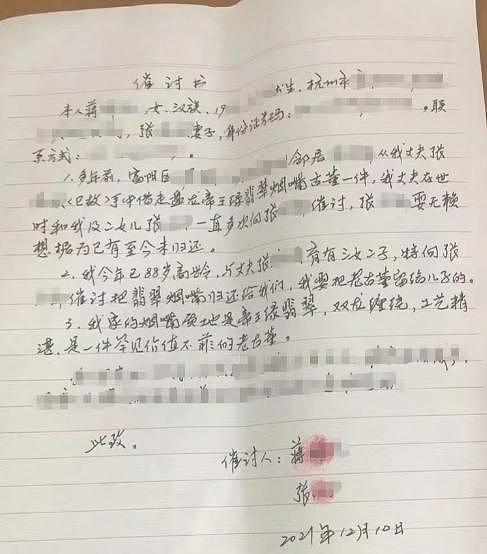 催讨书
本人蒋 ,女,汉族,19 出生,杭州市
,张 妻子,身份证号码: 。联
系方式: 。
1.多年前,富阳区 邻居 从我丈夫张
(已故)手中借走盘龙帝王绿翡翠烟嘴古董一件,我丈夫在世
时和我及二女儿张 ,一直多次向张 催讨,张 耍无赖
想据为己有至今未归还。
2.我今年已88岁高龄,与丈夫张 育有三女二子,特向张
,催讨把翡翠烟嘴归还给我们,我要把老古董留给儿子的。
3.我家的烟嘴质地是帝王绿翡翠,双龙缠绕,工艺精
湛,是一件罕见价值不菲的老古董。
此致。
催讨人:蒋
张
2021年12月10日